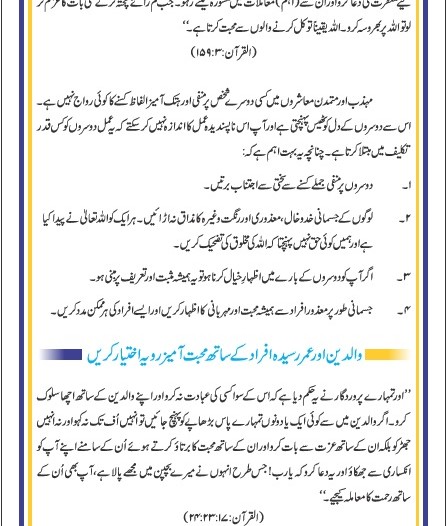 لیے مغفرت کی دعا کرو اور ان سے (اہم) معاملات میں مشورہ لیتے رہو۔ جب تم رائے پختہ کرنے کی بات کا عزم کر
لو تو اللہ پر بھروسہ کرو۔ اللہ یقیناً توکل کرنے والوں سے محبت کرتا ہے۔‘‘
(القرآن:۳:۱۵۹)
مہذب اور متمدن معاشروں میں کسی دوسرے شخص پر منفی اور ہتک آمیز الفاظ کسنے کا کوئی رواج نہیں ہے۔
اس سے دوسروں کے دل کو ٹھیس پہنچتی ہے اور آپ اس ناپسندیدہ عمل کا اندازہ نہیں کر سکتے کہ یہ عمل دوسروں کو کس قدر
تکلیف میں مبتلا کرتا ہے۔ چنانچہ یہ بہت اہم ہے کہ:
۱۔ دوسروں پر منفی جملے کسنے سے سختی سے اجتناب برتیں۔
۲۔ لوگوں کے جسمانی خدوخال، معذوری اور رنگت وغیرہ کا مذاق نہ اڑائیں۔ ہر ایک کو اللہ تعالیٰ نے پیدا کیا
ہے اور ہمیں کوئی حق نہیں پہنچتا کہ اللہ کی مخلوق کی تضحیک کریں۔
۳۔ اگر آپ کو دوسروں کے بارے میں اظہار خیال کرنا ہو تو یہ ہمیشہ مثبت اور تعریف پر مبنی ہو۔
۴۔ جسمانی طور پر معذور افراد سے ہمیشہ محبت اور مہربانی کا اظہار کریں اور ایسے افراد کی ہر ممکن مدد کریں۔
والدین اور عمر رسیدہ افراد کے ساتھ محبت آمیز رویہ اختیار کریں
’’اور تمہارے پروردگار نے یہ حکم دیا ہے کہ اس کے سوا کسی کی عبادت نہ کرو اور اپنے والدین کے ساتھ اچھا سلوک
کرو۔ اگر والدین میں سے کوئی ایک یا دونوں تمہارے پاس بڑھاپے کو پہنچ جائیں تو انہیں اُف تک نہ کہو اور نہ انہیں
جھڑکو بلکہ ان کے ساتھ عزت سے بات کرو اور ان کے ساتھ محبت کا برتاؤ کرتے ہوئے اُن کے سامنے اپنے آپ کو
انکساری سے جھکاؤ اور یہ دعا کرو کہ یارب! جس طرح انہوں نے میرے بچپن میں مجھے پالا ہے، آپ بھی اُن کے
ساتھ رحمت کا معاملہ کیجیے۔‘‘
(القرآن:۱۷:۲۳:۲۴)